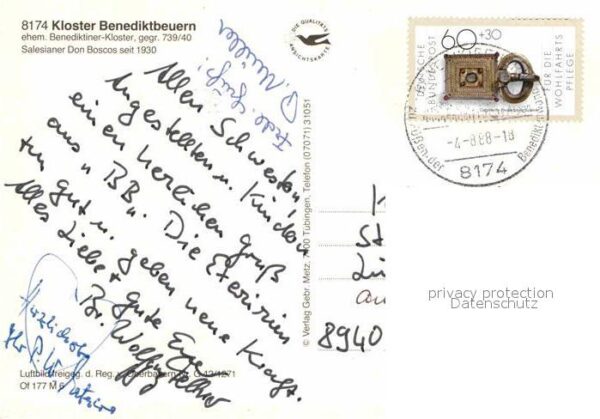 8174 Kloster Benediktbeuern
ehem. Benediktiner-Kloster, gegr. 739/40
Salesianer Don Boscos seit 1930
DIE QUALITÄTS
ANSICHTSKARTE
Allen Schwestern,
Angestellten u. Kindern
einen herzlichen Gruß
aus "BB". Die Exerzitien
tun gut u. geben neue Kraft.
Alles Liebe + gute
Br. Wolfgang
Herzlichst
Ihr P.
Luftbild freigeg. d. Reg. v. Oberbayern Nr. G 43/1271
Of 177 M 6
© Verlag Gebr. Metz, 7400 Tübingen, Telefon (07071) 31051
DEUTSCHE
BUNDESPOST
60+30
FÜR DIE
WOHLFAHRTS
PFLEGE
-4-8.88-18
8174
Benediktenwand
8940
privacy protection
Datenschutz